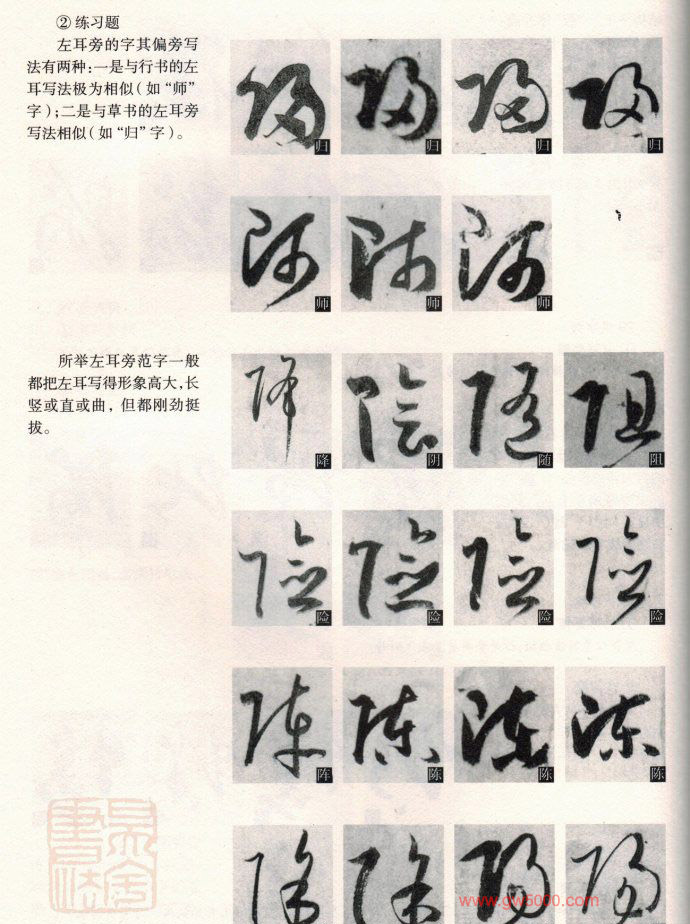 ②练习题
左耳旁的字其偏旁写
法有两种:一是与行书的左
耳写法极为相似(如“师”
字);二是与草书的左耳旁
写法相似(如“归”字)。
归 归 归 归
师 师 师
所举左耳旁范字一般
都把左耳写得形象高大,长
竖或直或曲,但都刚劲挺
拔。
降 阴 随 阻
险 险 险 险
阵 陈 陈 陈
www.gw5000.com